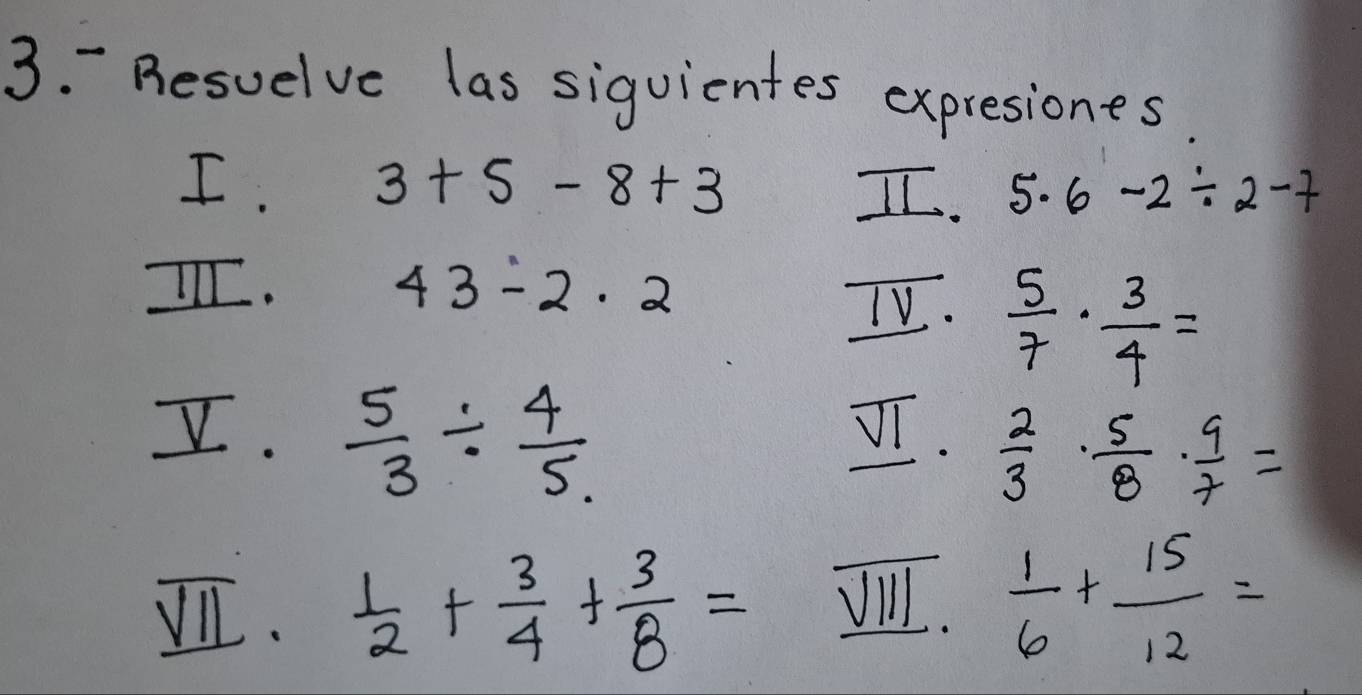 3.- Resuelve las siguientes expresiones.
I. 3+5-8+3 II. 5·6-2÷2-7
III. 43-2·2 IV. 5/7 · 3/4 =
V. 5/3 ÷ 4/5. VI. 2/3 · 5/8 · 9/7 =
VII. 1/2 + 3/4 + 3/8 = VIII. 1/6 + 15/12 =